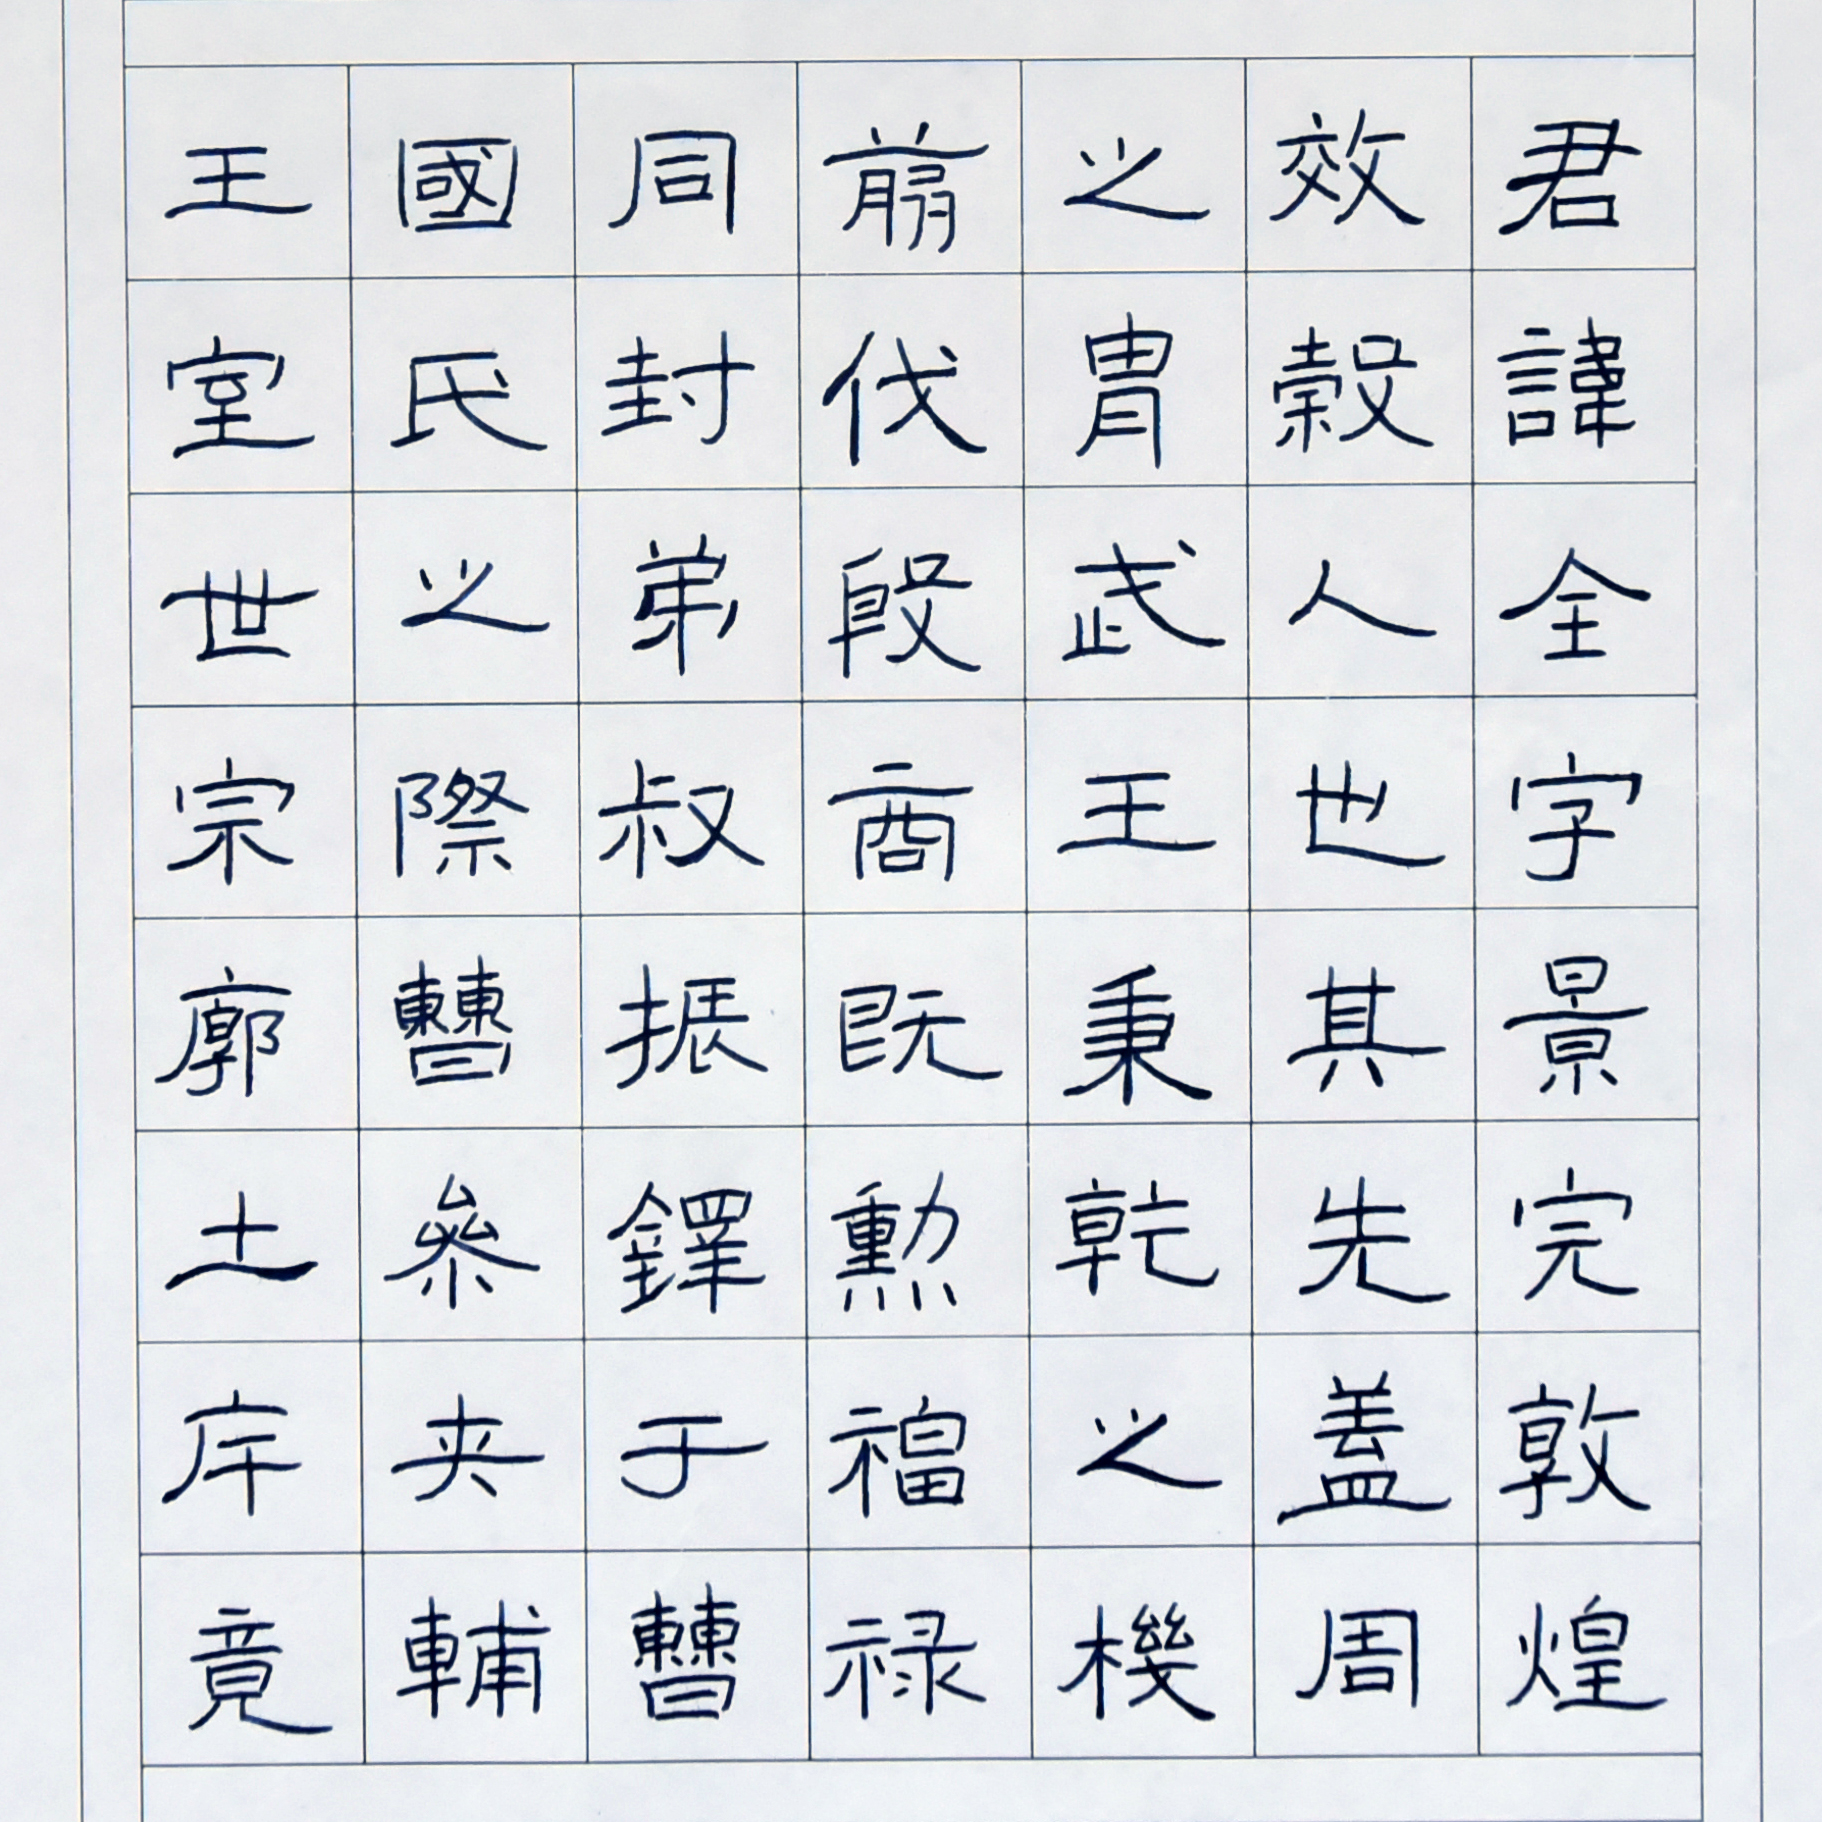 君諱全字景完敦煌
效穀人也其先蓋周
之胄武王秉乾之機
翦伐殷商既勳福禄
同封弟叔振鐸于曹
國氏之際曹參夾輔
王室世宗廓土斥竟